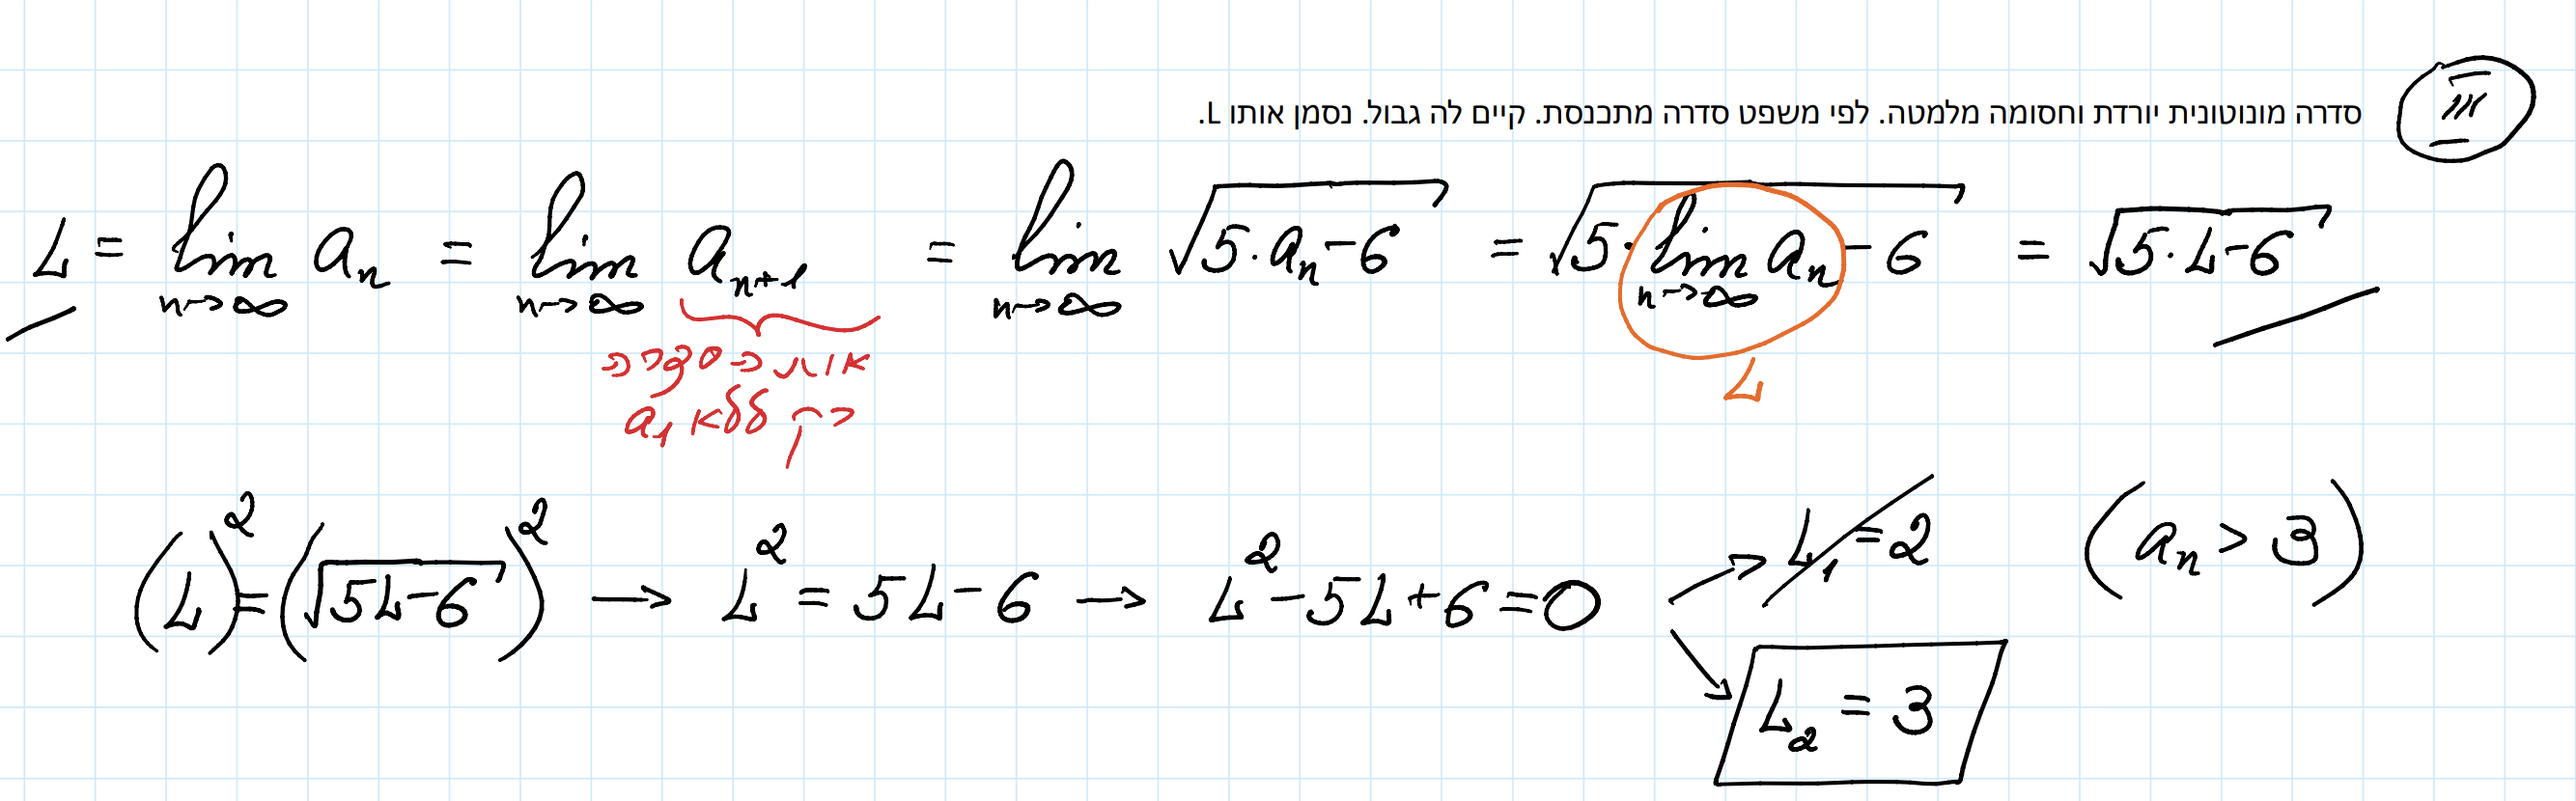 III סדרה מונוטונית יורדת וחסומה מלמטה. לפי משפט סדרה מתכנסת. קיים לה גבול. נסמן אותו L.
L = lim_{n→∞} a_n = lim_{n→∞} a_{n+1} = lim_{n→∞} √(5·a_n−6) = √(5·lim_{n→∞} a_n −6) = √(5·L−6)
אותה סדרה
רק ללא a_1
L
(L)^2 = (√(5L−6))^2 → L^2 = 5L−6 → L^2−5L+6=0
L_1 = 2 (a_n > 3)
L_2 = 3